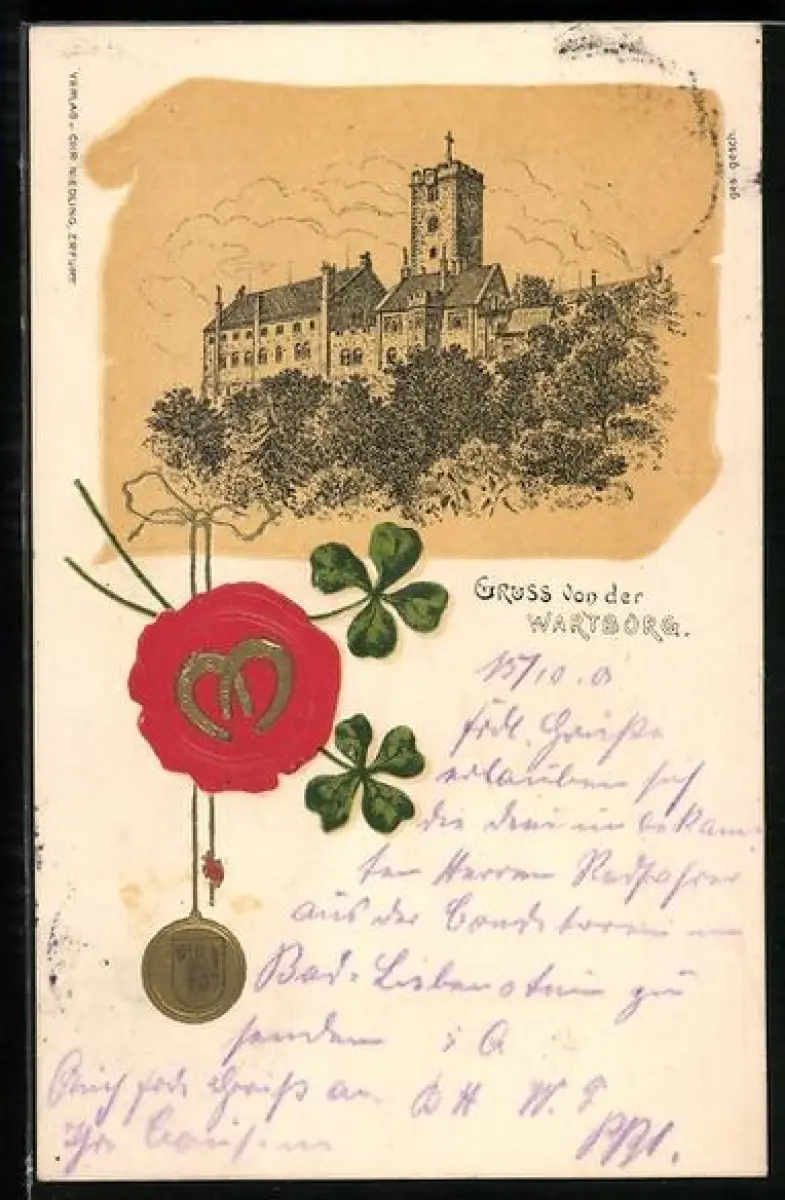 VERLAG v. CHR. NIEDLING, ERFURT
ges. gesch.
GRUSS von der
WARTBURG.
15/10.0
frdl. Grüße
erlauben sich
die drei unbekann
ten Herren Radfahrer
aus der Conditorei in
Bad-Liebenstein zu
senden
Auch frdl. Gruß an
Ihre